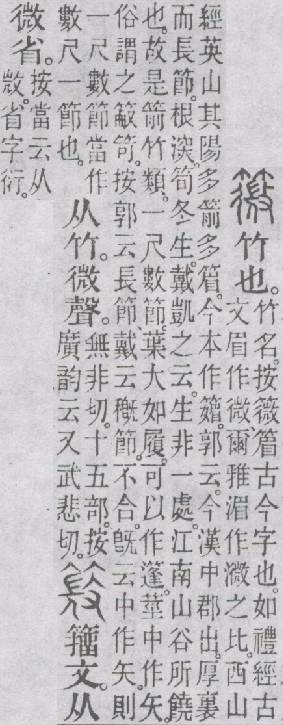 䉠竹也。
竹名。按䉠䈞古今字也。如禮經古
文眉作微。爾雅湄作溦之比。西山
經英山其陽多箭多䈞。今本作䉋。郭云。今漢中郡出。厚裏
而長節。根深。筍冬生。戴凱之云。生非一處。江南山谷所饒
也。故是箭竹類。一尺數節。葉大如履。可以作篷。莖中作矢。
俗謂之筍。按郭云長節。戴云穊節。不合。旣云中作矢。則
一尺數節當作
數尺一節也。
从竹。微聲。
無非切。十五部。按
廣韵云又武悲切。
籒文。从
微省。
按當云从
𢼸。省字衍。